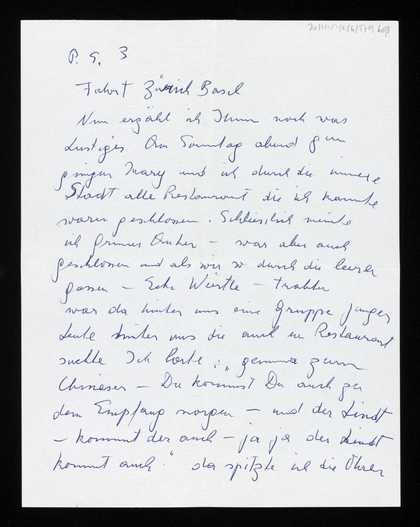 P.S. 3
Fahrt Zürich Basel
Nun erzähl ich Ihnen noch was
Lustiges Am Sonntag abend
gingen Mary und ich durch die innere
Stadt alle Restaurant die ich kannte
waren geschlossen. Schliesslich meinte
ich Grünes Anker – war aber auch
geschlossen und als wir so durch die leeren
gassen –
war da hinter uns eine Gruppe junger
Leute hinter uns die auch ein Restaurant
suchte Ich hörte: „gemma zum
Chineser – Du kommst Du auch zu
dem Empfang morgen – und der Lindt
– kommt der auch – ja ja der Lindt
kommt auch" da spitzte ich die Ohren